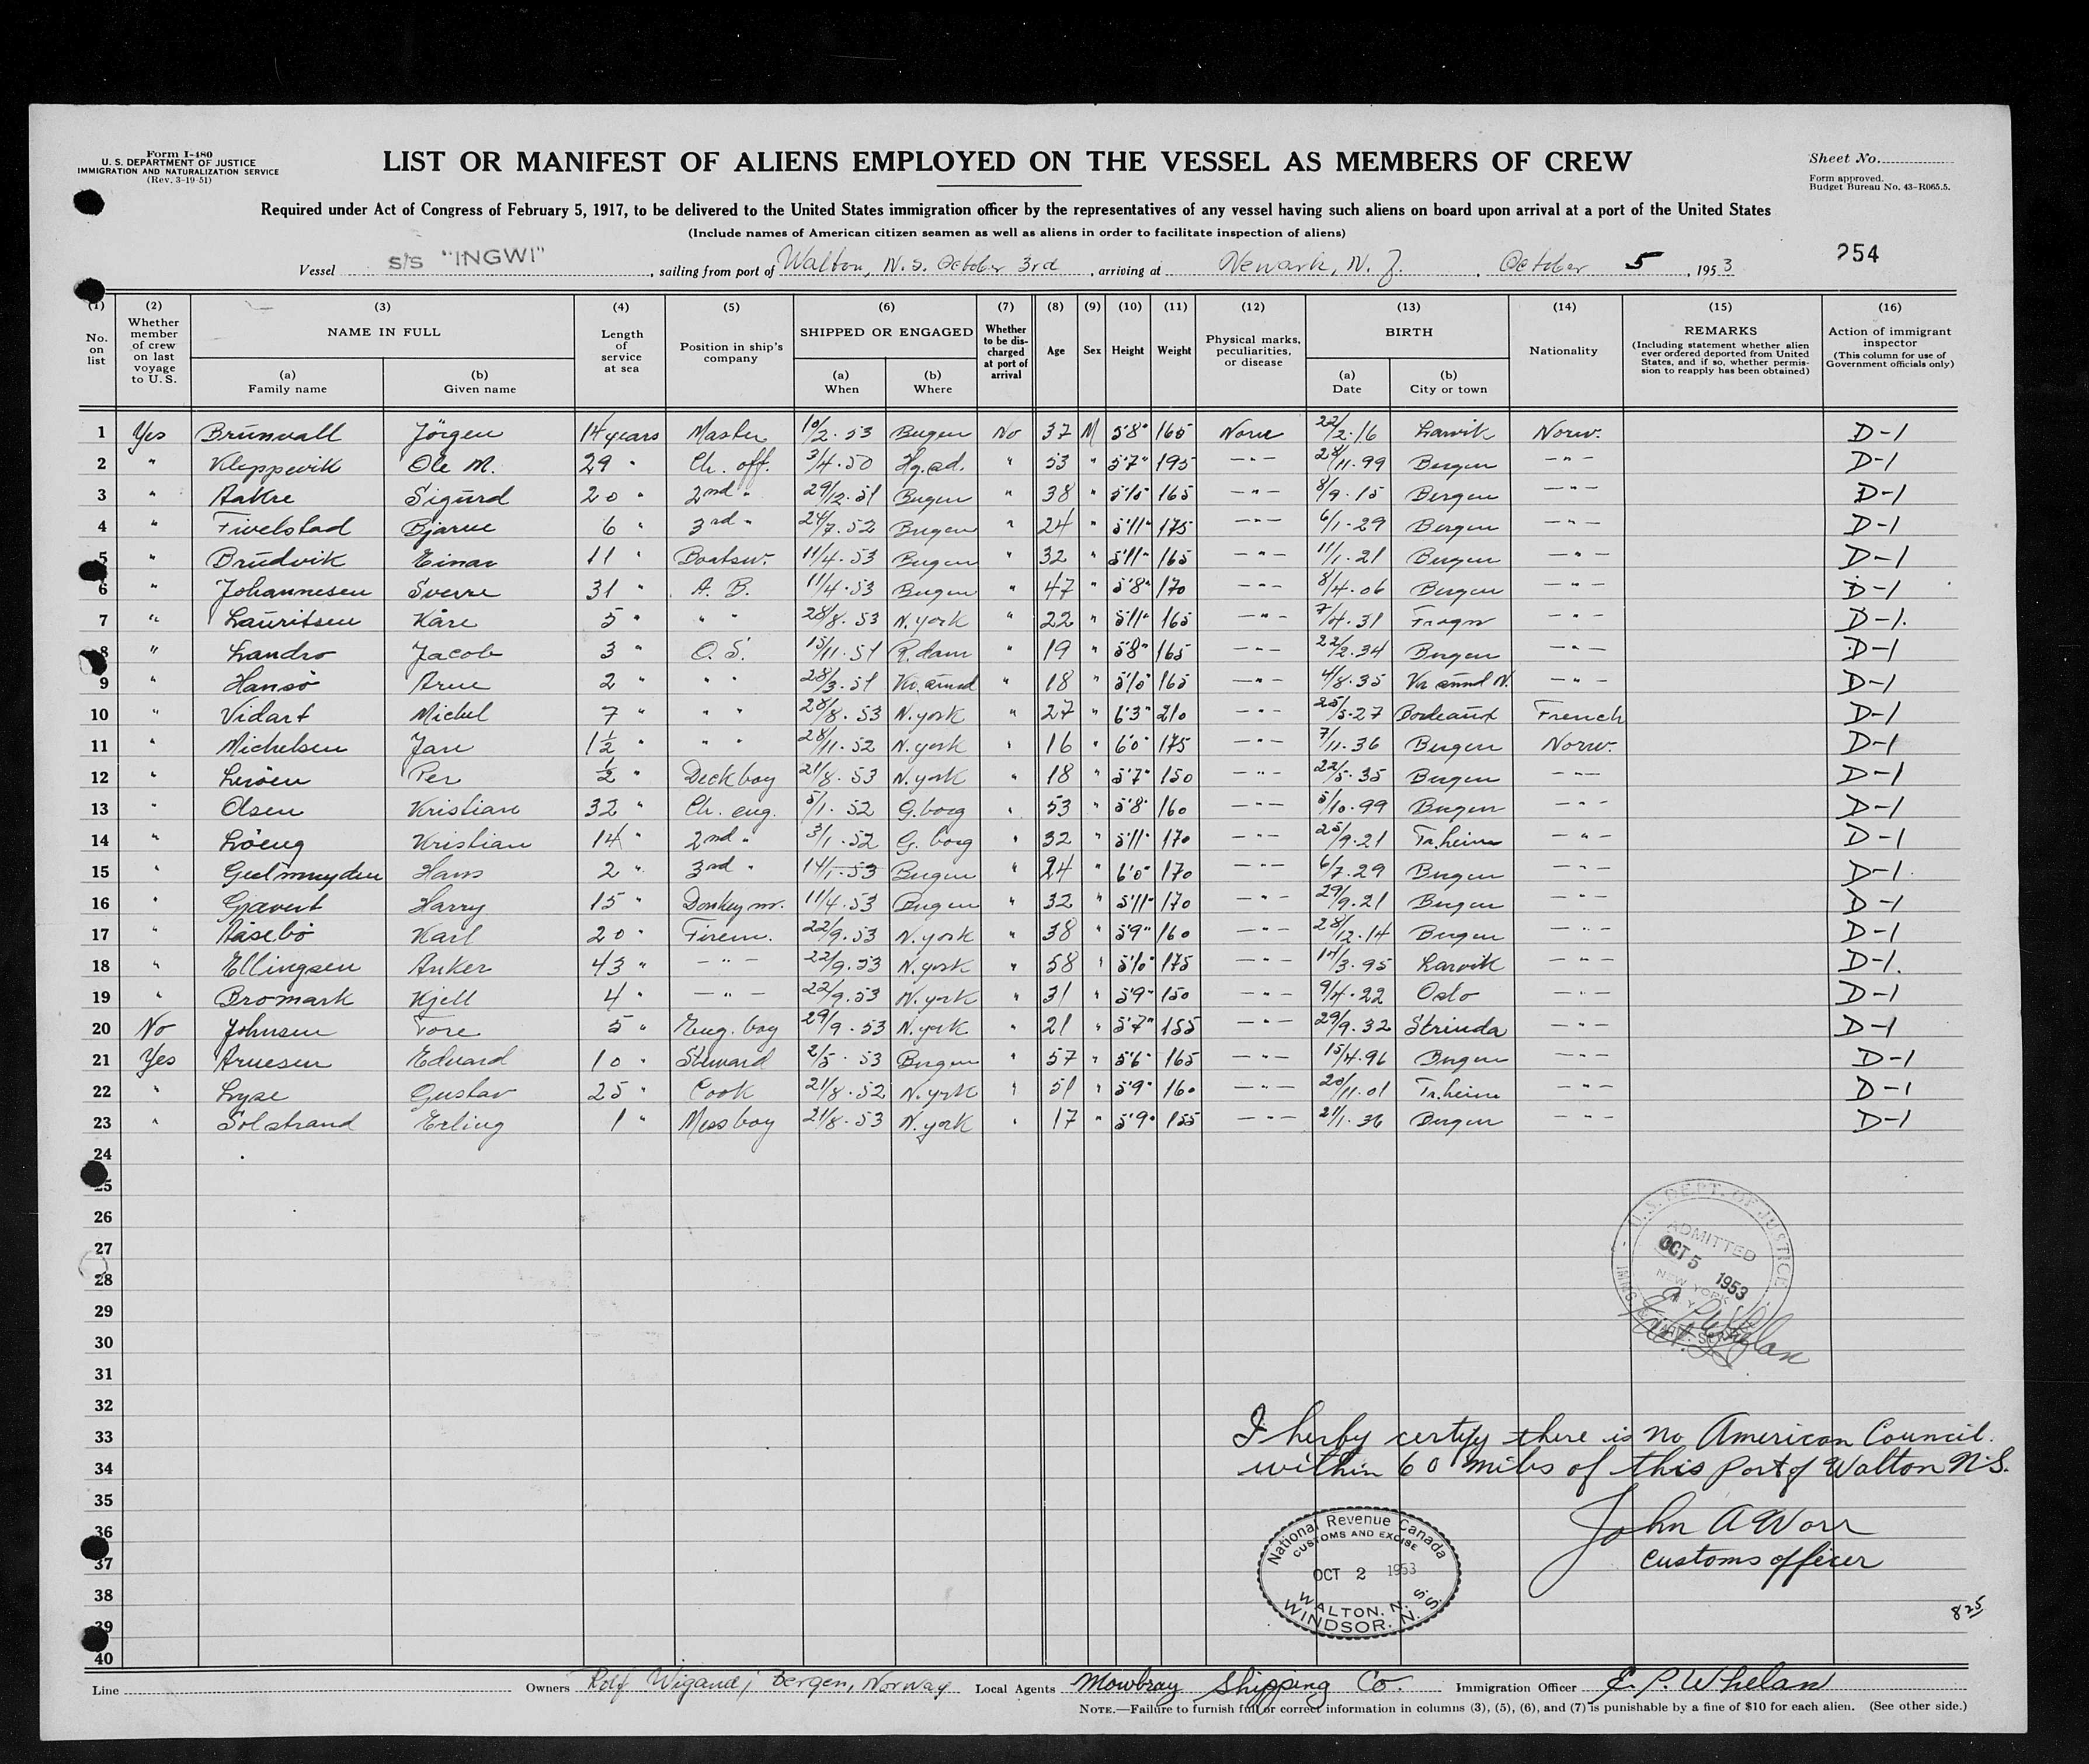 Form I-480
U. S. DEPARTMENT OF JUSTICE
IMMIGRATION AND NATURALIZATION SERVICE
(Rev. 3-19-51)
LIST OR MANIFEST OF ALIENS EMPLOYED ON THE VESSEL AS MEMBERS OF CREW
Sheet No.
Form approved.
Budget Bureau No. 43-R065.5.
Required under Act of Congress of February 5, 1917, to be delivered to the United States immigration officer by the representatives of any vessel having such aliens on board upon arrival at a port of the United States
(Include names of American citizen seamen as well as aliens in order to facilitate inspection of aliens)
Vessel S/S "INGWI", sailing from port of Walton, N.S. October 3rd, arriving at Newark, N. J., October 5, 1953
254
(1) No. on list
(2) Whether member of crew on last voyage to U. S.
(3) NAME IN FULL (a) Family name (b) Given name
(4) Length of service at sea
(5) Position in ship's company
(6) SHIPPED OR ENGAGED (a) When (b) Where
(7) Whether to be discharged at port of arrival
(8) Age
(9) Sex
(10) Height
(11) Weight
(12) Physical marks, peculiarities, or disease
(13) BIRTH (a) Date (b) City or town
(14) Nationality
(15) REMARKS (Including statement whether alien ever ordered deported from United States, and if so, whether permission to reapply has been obtained)
(16) Action of immigrant inspector (This column for use of Government officials only)
1 Yes Brunvall Jörgen 14 years Master 10/2-53 Bergen No 37 M 5'8" 165 None 22/2-16 Larvik Norw. D-1
2 " Kleppevik Ole M. 29 " Ch. off. 3/4-50 " 53 " 5'7" 195 -"- 11-99 Bergen -"- D-1
3 " Aakre Sigurd 20 " 2nd " 29/12-51 Bergen " 38 " 5'10" 165 -"- 8/9-15 Bergen -"- D-1
4 " Fivelstad Bjarne 6 " 3rd " 24/7-52 Bergen " 24 " 5'11" 175 -"- 6/1-29 Bergen -"- D-1
5 " Brudvik Einar 11 " Boatsw. 11/4-53 Bergen " 32 " 5'11" 165 -"- 11/1-21 Bergen -"- D-1
6 " Johannesen Sverre 31 " A. B. 11/4-53 Bergen " 47 " 5'8" 170 -"- 8/4-06 Bergen -"- D-1
7 " Lauritsen Kåre 5 " " " 28/8-53 N.york " 22 " 5'11" 165 -"- 7/4-31 -"- D-1.
8 " Landro Jacob 3 " O. S. 15/11-51 R.dam " 19 " 5'8" 165 -"- 22/2-34 Bergen -"- D-1
9 " Hansö Arne 2 " " " 28/3-51 " 18 " 5'10" 165 -"- 4/8-35 -"- D-1
10 " Vidart Michel 7 " " " 28/8-53 N.york " 27 " 6'3" 210 -"- 25/5-27 Bordeaux French D-1
11 " Michelsen Jan 1½ " " " 28/11-52 N.york " 16 " 6'0" 175 -"- 7/11-36 Bergen Norw. D-1
12 " Leröen Per ½ " Deck boy 21/8-53 N.york " 18 " 5'7" 150 -"- 22/5-35 Bergen -"- D-1
13 " Olsen Kristian 32 " Ch. eng. 5/1-52 G.borg " 53 " 5'8" 160 -"- 5/10-99 Bergen -"- D-1
14 " Löeng Kristian 14 " 2nd " 3/1-52 G.borg " 32 " 5'11" 170 -"- 25/9-21 Tr.heim -"- D-1
15 " Geelmuyden Hans 2 " 3rd " 14/1-53 Bergen " 24 " 6'0" 170 -"- 6/7-29 Bergen -"- D-1
16 " Gjævert Harry 15 " Donkeym. 11/4-53 Bergen " 32 " 5'11" 170 -"- 29/9-21 Bergen -"- D-1
17 " Åsebö Karl 20 " Firem. 22/9-53 N.york " 38 " 5'9" 160 -"- 28/12-14 Bergen -"- D-1
18 " Ellingsen Anker 43 " -"- 22/9-53 N.york " 58 " 5'10" 175 -"- 3-95 Larvik -"- D-1.
19 " Bromark Kjell 4 " -"- 22/9-53 N.york " 31 " 5'9" 150 -"- 9/4-22 Oslo -"- D-1
20 No Johnsen Tore 5 " Eng. boy 29/9-53 N.york " 21 " 5'7" 155 -"- 29/9-32 Strinda -"- D-1
21 Yes Arnesen Edvard 10 " Steward 2/5-53 Bergen " 57 " 5'6" 165 -"- 15/4-96 Bergen -"- D-1
22 " Lyse Gustav 25 " Cook 21/8-52 N.york " 51 " 5'9" 160 -"- 20/11-01 Tr.heim -"- D-1
23 " Solstrand Erling 1 " Messboy 21/8-53 N.york " 17 " 5'9" 155 -"- 21/1-36 Bergen -"- D-1
24
25
26
27
28
29
30
31
32
33
34
35
36
37
38
39
40
U. S. DEPT. OF JUSTICE
ADMITTED
OCT 5 1953
NEW YORK
N. Y.
IMMIG. & NAT. SERVICE
E. P. Whelan
I herby certify there is no American Council.
within 60 miles of this Port of Walton N.S.
John A Worr
Customs officer
National Revenue Canada
CUSTOMS AND EXCISE
OCT 2 1953
WALTON, N. S.
WINDSOR, N. S.
825
Line Owners Rolf Wigand, Bergen, Norway Local Agents Mowbray Shipping Co. Immigration Officer E. P. Whelan
NOTE.—Failure to furnish full or correct information in columns (3), (5), (6), and (7) is punishable by a fine of $10 for each alien. (See other side.)